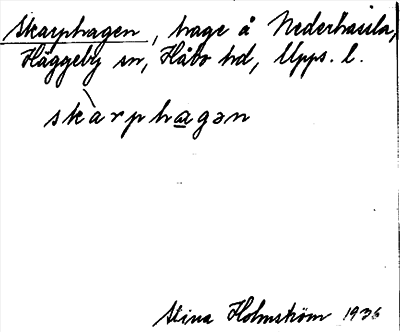 Skarphagen, hage å Nederhassla,
Häggeby sn, Håbo hd, Upps. l.
skàrphagən
Stina Holmström 1936